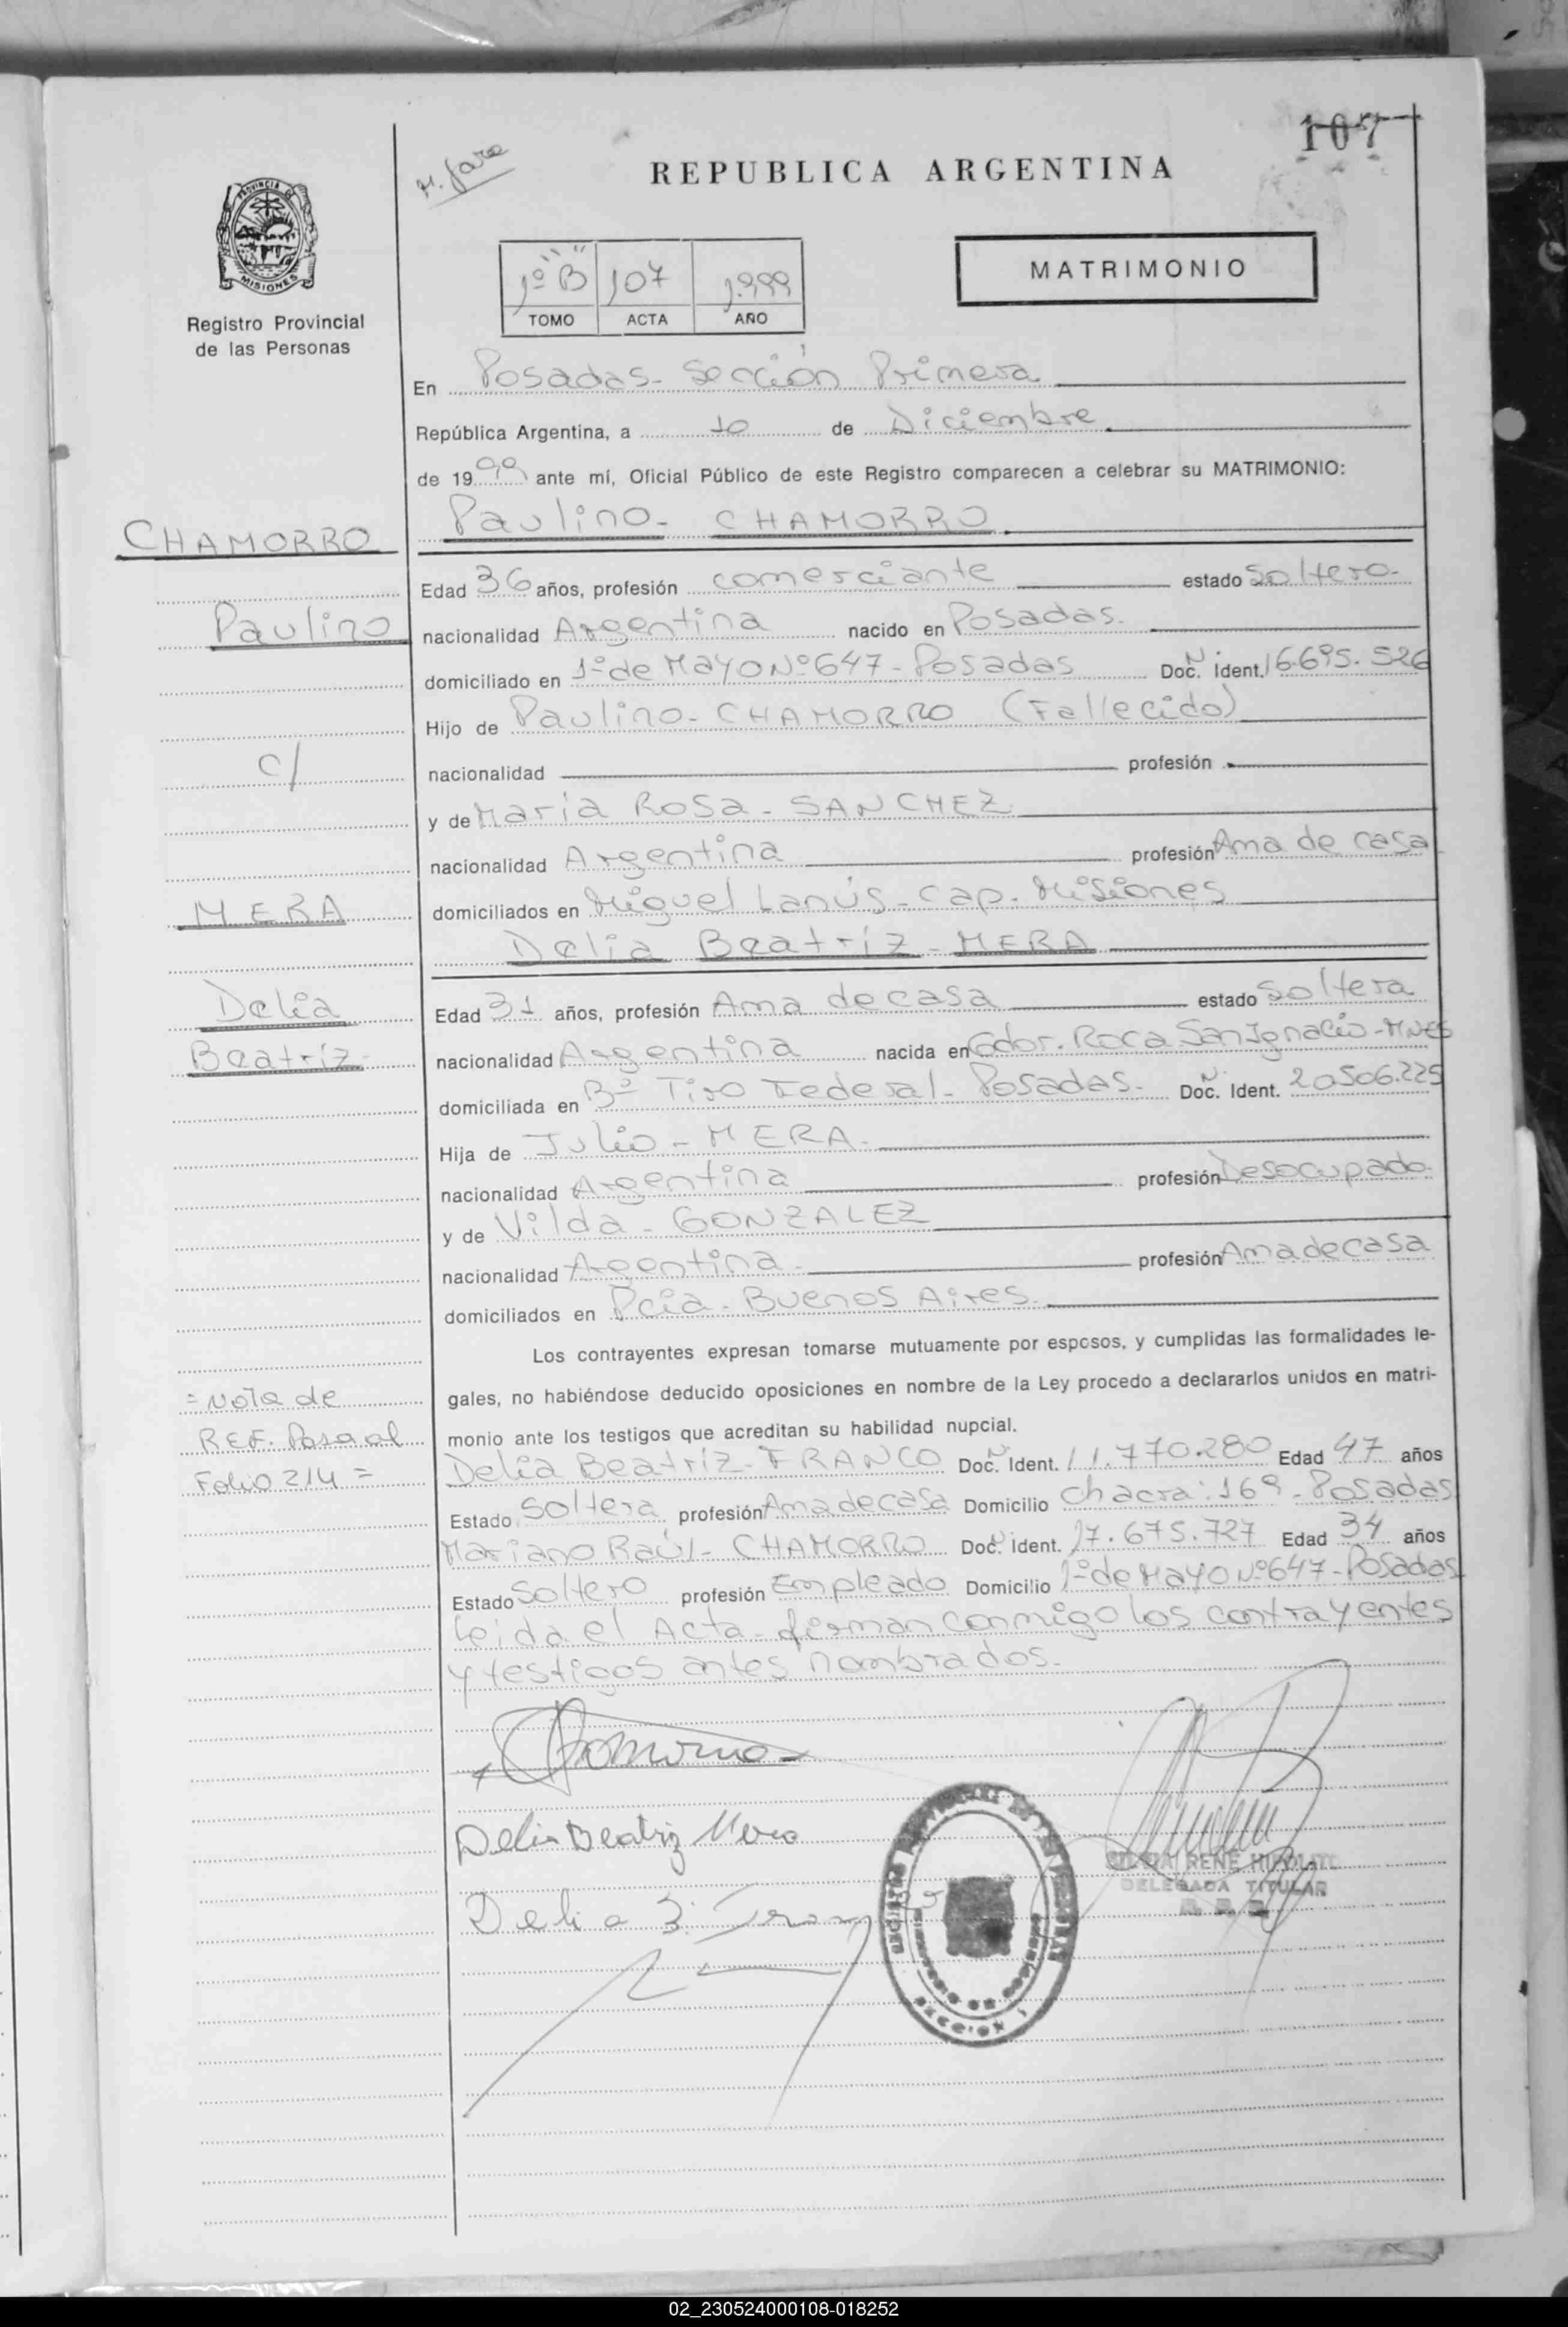 107
REPUBLICA ARGENTINA
PROVINCIA DE
MISIONES
Registro Provincial
de las Personas
1º "B" 107 1.999
TOMO ACTA AÑO
MATRIMONIO
En Posadas - Sección Primera
República Argentina, a 10 de Diciembre
de 1999 ante mí, Oficial Público de este Registro comparecen a celebrar su MATRIMONIO:
Paulino - CHAMORRO
Edad 36 años, profesión comerciante estado Soltero
nacionalidad Argentina nacido en Posadas.
domiciliado en 1º de Mayo Nº 647 - Posadas Doc. N Ident. 16.695.526
Hijo de Paulino - CHAMORRO (Fallecido)
nacionalidad profesión
y de María Rosa - SANCHEZ
nacionalidad Argentina profesión Ama de casa
domiciliados en Miguel Lanús - Cap. Misiones
Delia Beatríz - MERA
Edad 31 años, profesión Ama de casa estado Soltera
nacionalidad Argentina nacida en Gdor. Roca San Ignacio - MNES
domiciliada en Bº Tiro Federal - Posadas. Doc. N Ident. 20506.225
Hija de Julio - MERA.
nacionalidad Argentina profesión Desocupado.
y de Vilda - GONZALEZ
nacionalidad Argentina. profesión Ama de casa
domiciliados en Pcia - Buenos Aires.
Los contrayentes expresan tomarse mutuamente por esposos, y cumplidas las formalidades le-
gales, no habiéndose deducido oposiciones en nombre de la Ley procedo a declararlos unidos en matri-
monio ante los testigos que acreditan su habilidad nupcial.
Delia Beatríz - FRANCO Doc. N Ident. 11.770.280 Edad 47 años
Estado Soltera profesión Ama de casa Domicilio Chacra: 169 - Posadas
Mariano Raúl - CHAMORRO Doc. N Ident. 17.675.727 Edad 34 años
Estado Soltero profesión Empleado Domicilio 1º de Mayo Nº 647 - Posadas
Leida el Acta - firman conmigo los contrayentes
y testigos antes nombrados.
CHAMORRO
Paulino
c/
MERA
Delia
Beatríz
= Nota de
REF. Pasa al
Folio 214 =
Delia Beatriz Mera
RENE HIPOLITO
DELEGADA TITULAR
SECCION 1
02_230524000108-018252